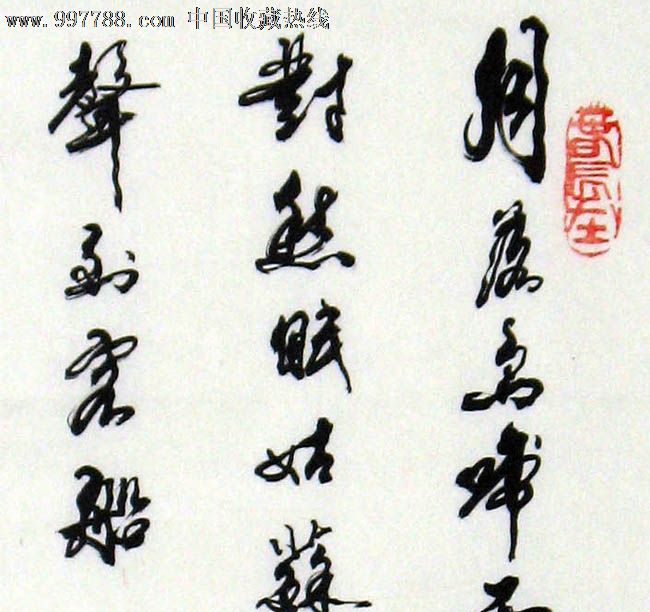 www.997788.com 中国收藏热线
月落烏啼
對愁眠姑蘇
聲到客船